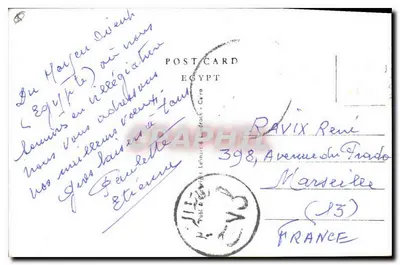 POST CARD
EGYPT
Du Moyen Orient
(Egypte) où nous
sommes en villégiature
nous vous adressons
nos meilleurs vœux.
Gros baisers à tous
Paulette
Etienne
RAVIX René
398, Avenue du Prado
Marseille
(13)
FRANCE